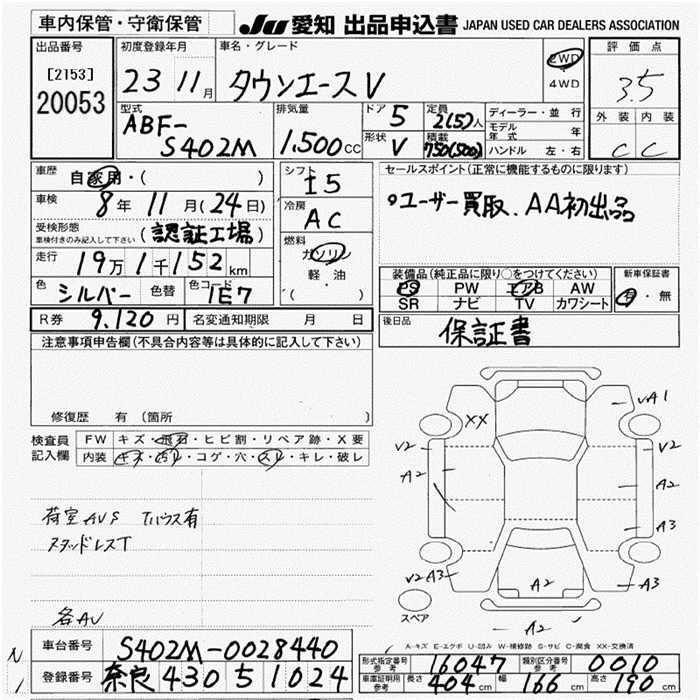 車内保管・守衛保管
JU 愛知 出品申込書 JAPAN USED CAR DEALERS ASSOCIATION
出品番号
[2153]
20053
初度登録年月
23 11月
車名・グレード
タウンエースV
2WD
4WD
評価点
3.5
外装 内装
C C
型式
ABF-
S402M
排気量
1.500cc
ドア 5
形状 V
定員 2(5)人
積載 750(500)
ディーラー・並行
モデル年式 年
ハンドル 左・右
車歴
自家用・( )
車検 8年11月(24日)
受検形態
車検付きのみ記入して下さい (認証工場)
走行 19万1千152km
色 シルバー 色替 色コード 1E7
シフト I5
冷房 AC
燃料
ガソリン
軽・油
( )
セールスポイント(正常に機能するものに限ります)
ユーザー買取、AA初出品
装備品(純正品に限り○をつけてください)
PS PW エアB AW
SR ナビ TV カワシート
新車保証書
有・無
R券 9.120円 名変通知期限 月 日
後日品
保証書
注意事項申告欄(不具合内容等は具体的に記入して下さい)
修復歴 有(箇所
検査員
記入欄
FW キズ・飛石・ヒビ割・リペア跡・X要
内装 キズ・汚レ・コゲ・穴・スレ・キレ・破レ
荷室AVS Tハウス有
スタッドレスT
各AU
XX
A1
V2
V2
A2
A2
A3
V2 A3
A3
A2
A2
スペア
A-キズ E-エクボ U-凹み W-補修跡 S-サビ C-腐食 XX-交換済
車台番号 S402M-0028440
登録番号 奈良430 5 1024
形式指定番号 参考 16047 類別区分番号 参考 0010
車庫証明用 参考 長さ 404cm 幅 166cm 高さ 190cm